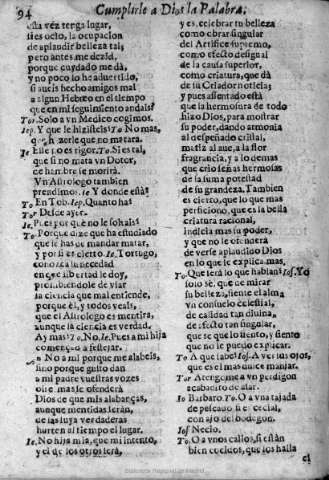 94 Cumplirle a Dios la Palabra.
esta vez tenga lugar,
si es ocio, la ocupacion
de aplaudir belleza tal;
pero antes me alerdè,
porque cuydado me dà,
y no poco lo he aduertido,
si aueis hecho amigos mal
a algun Hebreo en el tiempo
que en mi seguimiento andais?
Tor. Solo a vn Medico cogimos.
Iep. Y que le hizisteis? To. No mas,
que hazerle que no matara.
Ie. Esse, so es rigor. To. Si es tal,
que si no mata vn Dotor,
de hambre se morirà.
Vn Astrologo tambien
prendimos. Ie. Y donde està?
To. En Tob. Iep. Quanto has
Tor. Desde ayer.
Ie. Pues por què no le soltais?
To. Porque dize que ha estudiado
que le has de mandar matar,
y por si es cierto. Ie. Tortugo,
conozca la necedad
en esse libertad le doy,
prohibiendole de viar
la ciencia que mal entiende,
porque èl, y todos veais,
que el Astrologo es mentira,
aunque la ciencia es verdad.
Ay mas? To. No. Ie. Pues a mi hija
començò a festejar.
No a mi porque me alabeis,
sino porque gusto dan
a mi padre vuestras vozes
oirè mas se ofenderà
Dios de que mis alabanças,
aunque mentidas seràn,
de las suyas verdaderas
hurten al tiempo el lugar.
Ie. No hija mia, que mi intento,
y el de los otros serà,
y es, celebrar tu belleza
como obra singular
del Artifice supremo,
como efecto designal
de la causa superior,
como criatura, que dà
de su Criador noticia;
y pues assentado està
que la hermosura de todo
hizo Dios, para mostrar
su poder, dando armonia
al despeñado cristal,
matiz al aue, a la flor
fragrancia, y a lo demas
que criò señas hermosas
de la suma potestad
de su grandeza. Tambien
es cierto, que lo que mas
perficionò, que es la bella
criatura racional,
indicia mas su poder,
y que no se ofenderà
de verse aplaudido Dios
en lo que le explica mas.
To. Què serà lo que hablan? Ios. Yo
solo sè, que de mirar
su belleza, siente el alma
vn consuelo celestial,
de calidad tan diuina,
de efecto tan singular,
que se que lo siento, y siento
que no le puedo explicar.
To. A què sabe? Ios. A ver sus ojos,
que es el mas dulce manjar.
Tor. Atengome a vn perdigon
acabadito de assar.
Io. Barbaro. To. O a vna tajada
de pescado si es cecial,
con ajo del bodegon.
Ios. Necio.
To. O a vnos callos, si estàn
bien cocidos, que los halla
el
Biblioteca Regional de Madrid